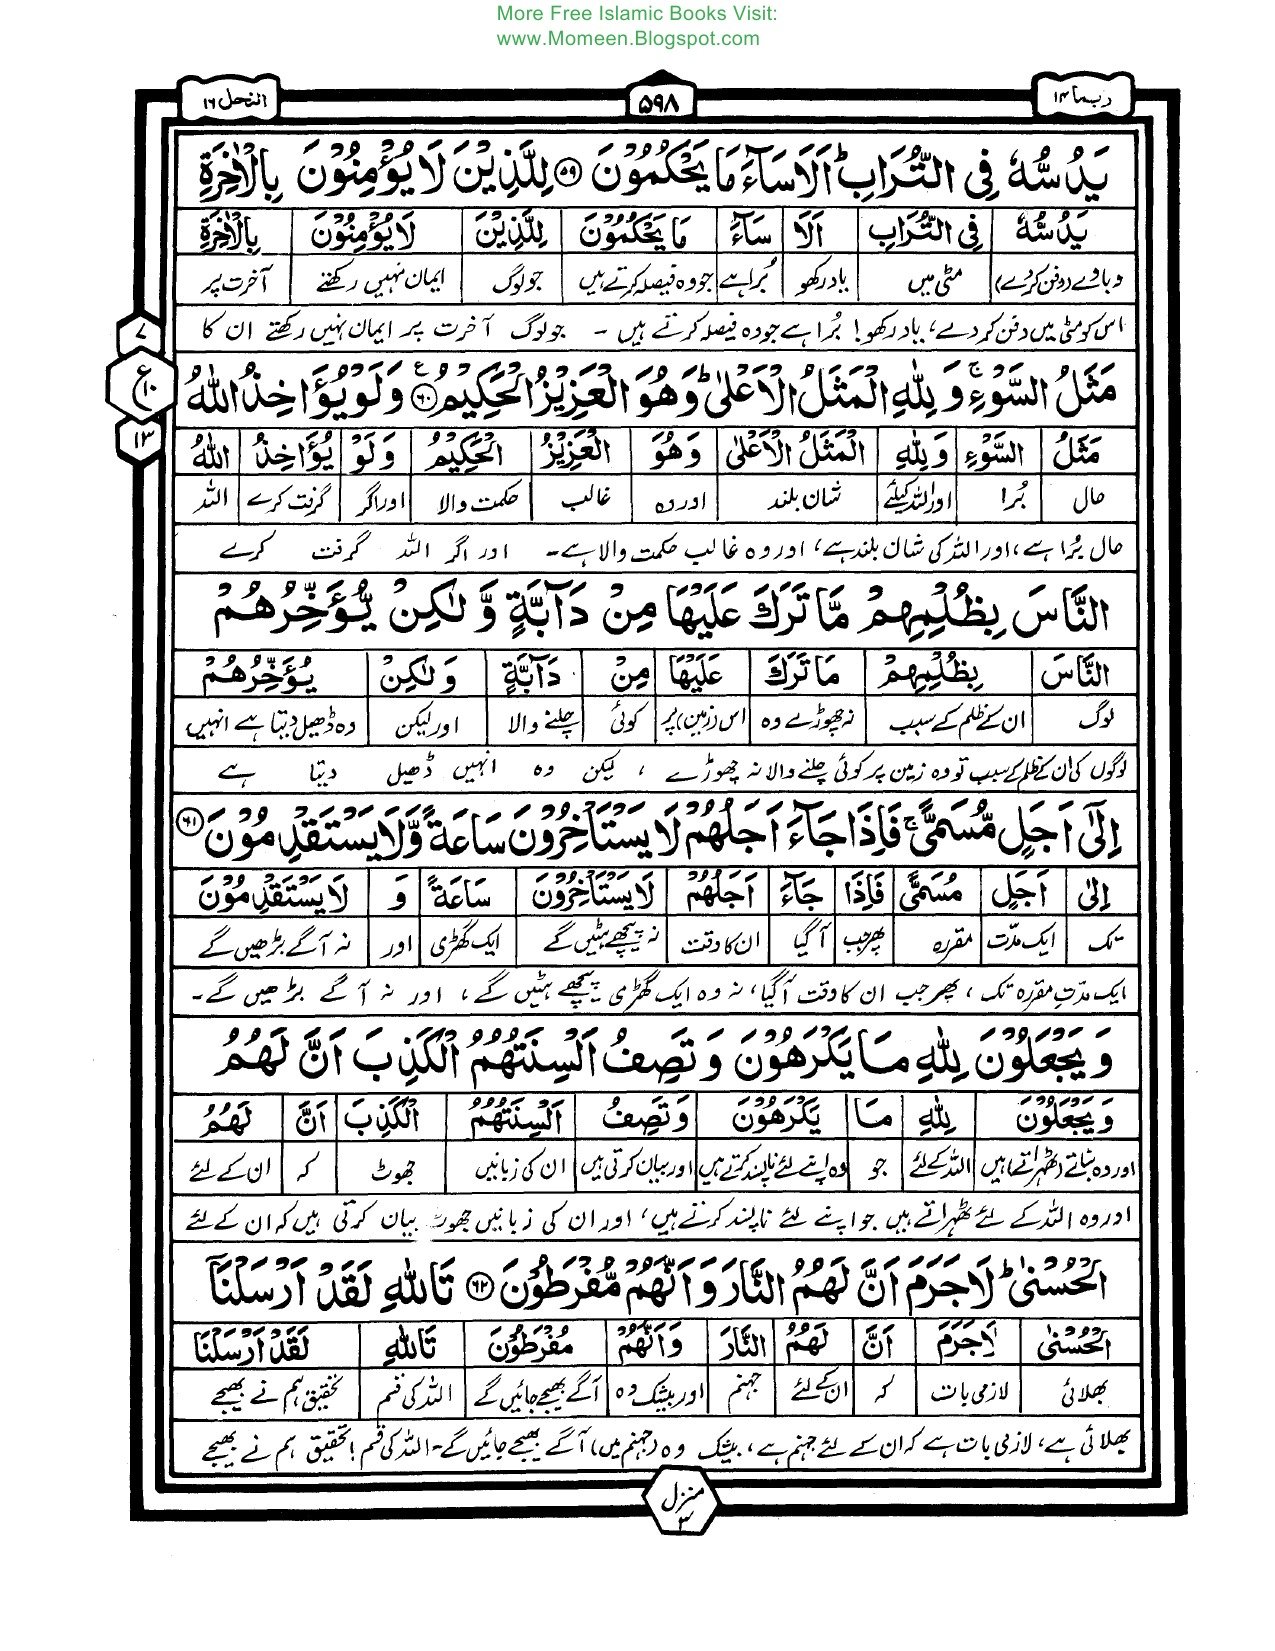 More Free Islamic Books Visit:
www.Momeen.Blogspot.com
ربما ۱۴
۵۹۸
النحل ۱۶
يَدُسُّهٗ فِي التُّرَابِ ؕ اَلَا سَآءَ مَا يَحْكُمُوْنَ ﴿۵۹﴾ لِلَّذِيْنَ لَا يُؤْمِنُوْنَ بِالْاٰخِرَةِ
يَدُسُّهٗ فِي التُّرَابِ اَلَا سَآءَ مَا يَحْكُمُوْنَ لِلَّذِيْنَ لَا يُؤْمِنُوْنَ بِالْاٰخِرَةِ
دبا دے (دفن کر دے) مٹی میں یاد رکھو بُرا ہے جو وہ فیصلہ کرتے ہیں جو لوگ ایمان نہیں رکھتے آخرت پر
اس کو مٹی میں دفن کر دے، یاد رکھو! بُرا ہے جو وہ فیصلہ کرتے ہیں ۔ جو لوگ آخرت پر ایمان نہیں رکھتے ان کا
۷
ع
۱۰
۱۳
مَثَلُ السَّوْءِ ۚ وَ لِلّٰهِ الْمَثَلُ الْاَعْلٰى ؕ وَهُوَ الْعَزِيْزُ الْحَكِيْمُ ﴿۶۰﴾ ع وَلَوْ يُؤَاخِذُ اللّٰهُ
مَثَلُ السَّوْءِ وَ لِلّٰهِ الْمَثَلُ الْاَعْلٰى وَهُوَ الْعَزِيْزُ الْحَكِيْمُ وَلَوْ يُؤَاخِذُ اللّٰهُ
حال بُرا اور اللہ کیلئے شان بلند اور وہ غالب حکمت والا اور اگر گرفت کرے اللہ
حال بُرا ہے، اور اللہ کی شان بلند ہے، اور وہ غالب حکمت والا ہے۔ اور اگر اللہ گرفت کرے
النَّاسَ بِظُلْمِهِمْ مَّا تَرَكَ عَلَيْهَا مِنْ دَآبَّةٍ وَّ لٰكِنْ يُّؤَخِّرُهُمْ
النَّاسَ بِظُلْمِهِمْ مَا تَرَكَ عَلَيْهَا مِنْ دَآبَّةٍ وَ لٰكِنْ يُؤَخِّرُهُمْ
لوگ ان کے ظلم کے سبب نہ چھوڑے وہ اس (زمین) پر کوئی چلنے والا اور لیکن وہ ڈھیل دیتا ہے انہیں
لوگوں کی ان کے ظلم کے سبب تو وہ زمین پر کوئی چلنے والا نہ چھوڑے ، لیکن وہ انہیں ڈھیل دیتا ہے
اِلٰٓى اَجَلٍ مُّسَمًّى ۚ فَاِذَا جَآءَ اَجَلُهُمْ لَا يَسْتَاْخِرُوْنَ سَاعَةً وَّلَا يَسْتَقْدِمُوْنَ ﴿۶۱﴾
اِلٰى اَجَلٍ مُسَمًّى فَاِذَا جَآءَ اَجَلُهُمْ لَا يَسْتَاْخِرُوْنَ سَاعَةً وَ لَا يَسْتَقْدِمُوْنَ
تک ایک مدّت مقررہ پھر جب آگیا ان کا وقت نہ پیچھے ہٹیں گے ایک گھڑی اور نہ آگے بڑھیں گے
ایک مدّتِ مقررہ تک ، پھر جب ان کا وقت آگیا، نہ وہ ایک گھڑی پیچھے ہٹیں گے، اور نہ آگے بڑھیں گے۔
وَ يَجْعَلُوْنَ لِلّٰهِ مَا يَكْرَهُوْنَ وَ تَصِفُ اَلْسِنَتُهُمُ الْكَذِبَ اَنَّ لَهُمُ
وَ يَجْعَلُوْنَ لِلّٰهِ مَا يَكْرَهُوْنَ وَ تَصِفُ اَلْسِنَتُهُمُ الْكَذِبَ اَنَّ لَهُمُ
اور وہ بناتے (ٹھہراتے) ہیں اللہ کے لئے جو وہ اپنے لئے ناپسند کرتے ہیں اور بیان کرتی ہیں ان کی زبانیں جھوٹ کہ ان کے لئے
اور وہ اللہ کے لئے ٹھہراتے ہیں جو اپنے لئے ناپسند کرتے ہیں، اور ان کی زبانیں جھوٹ بیان کرتی ہیں کہ ان کے لئے
الْحُسْنٰى ؕ لَا جَرَمَ اَنَّ لَهُمُ النَّارَ وَ اَنَّهُمْ مُّفْرَطُوْنَ ﴿۶۲﴾ تَاللّٰهِ لَقَدْ اَرْسَلْنَآ
الْحُسْنٰى لَا جَرَمَ اَنَّ لَهُمُ النَّارَ وَ اَنَّهُمْ مُفْرَطُوْنَ تَاللّٰهِ لَقَدْ اَرْسَلْنَا
بھلائی لازمی بات کہ ان کے لئے جہنم اور بیشک وہ آگے بھیجے جائیں گے اللہ کی قسم تحقیق ہم نے بھیجے
بھلائی ہے، لازمی بات ہے کہ ان کے لئے جہنم ہے، بیشک وہ (جہنم میں) آگے بھیجے جائیں گے۔ اللہ کی قسم! تحقیق ہم نے بھیجے
منزل
۳